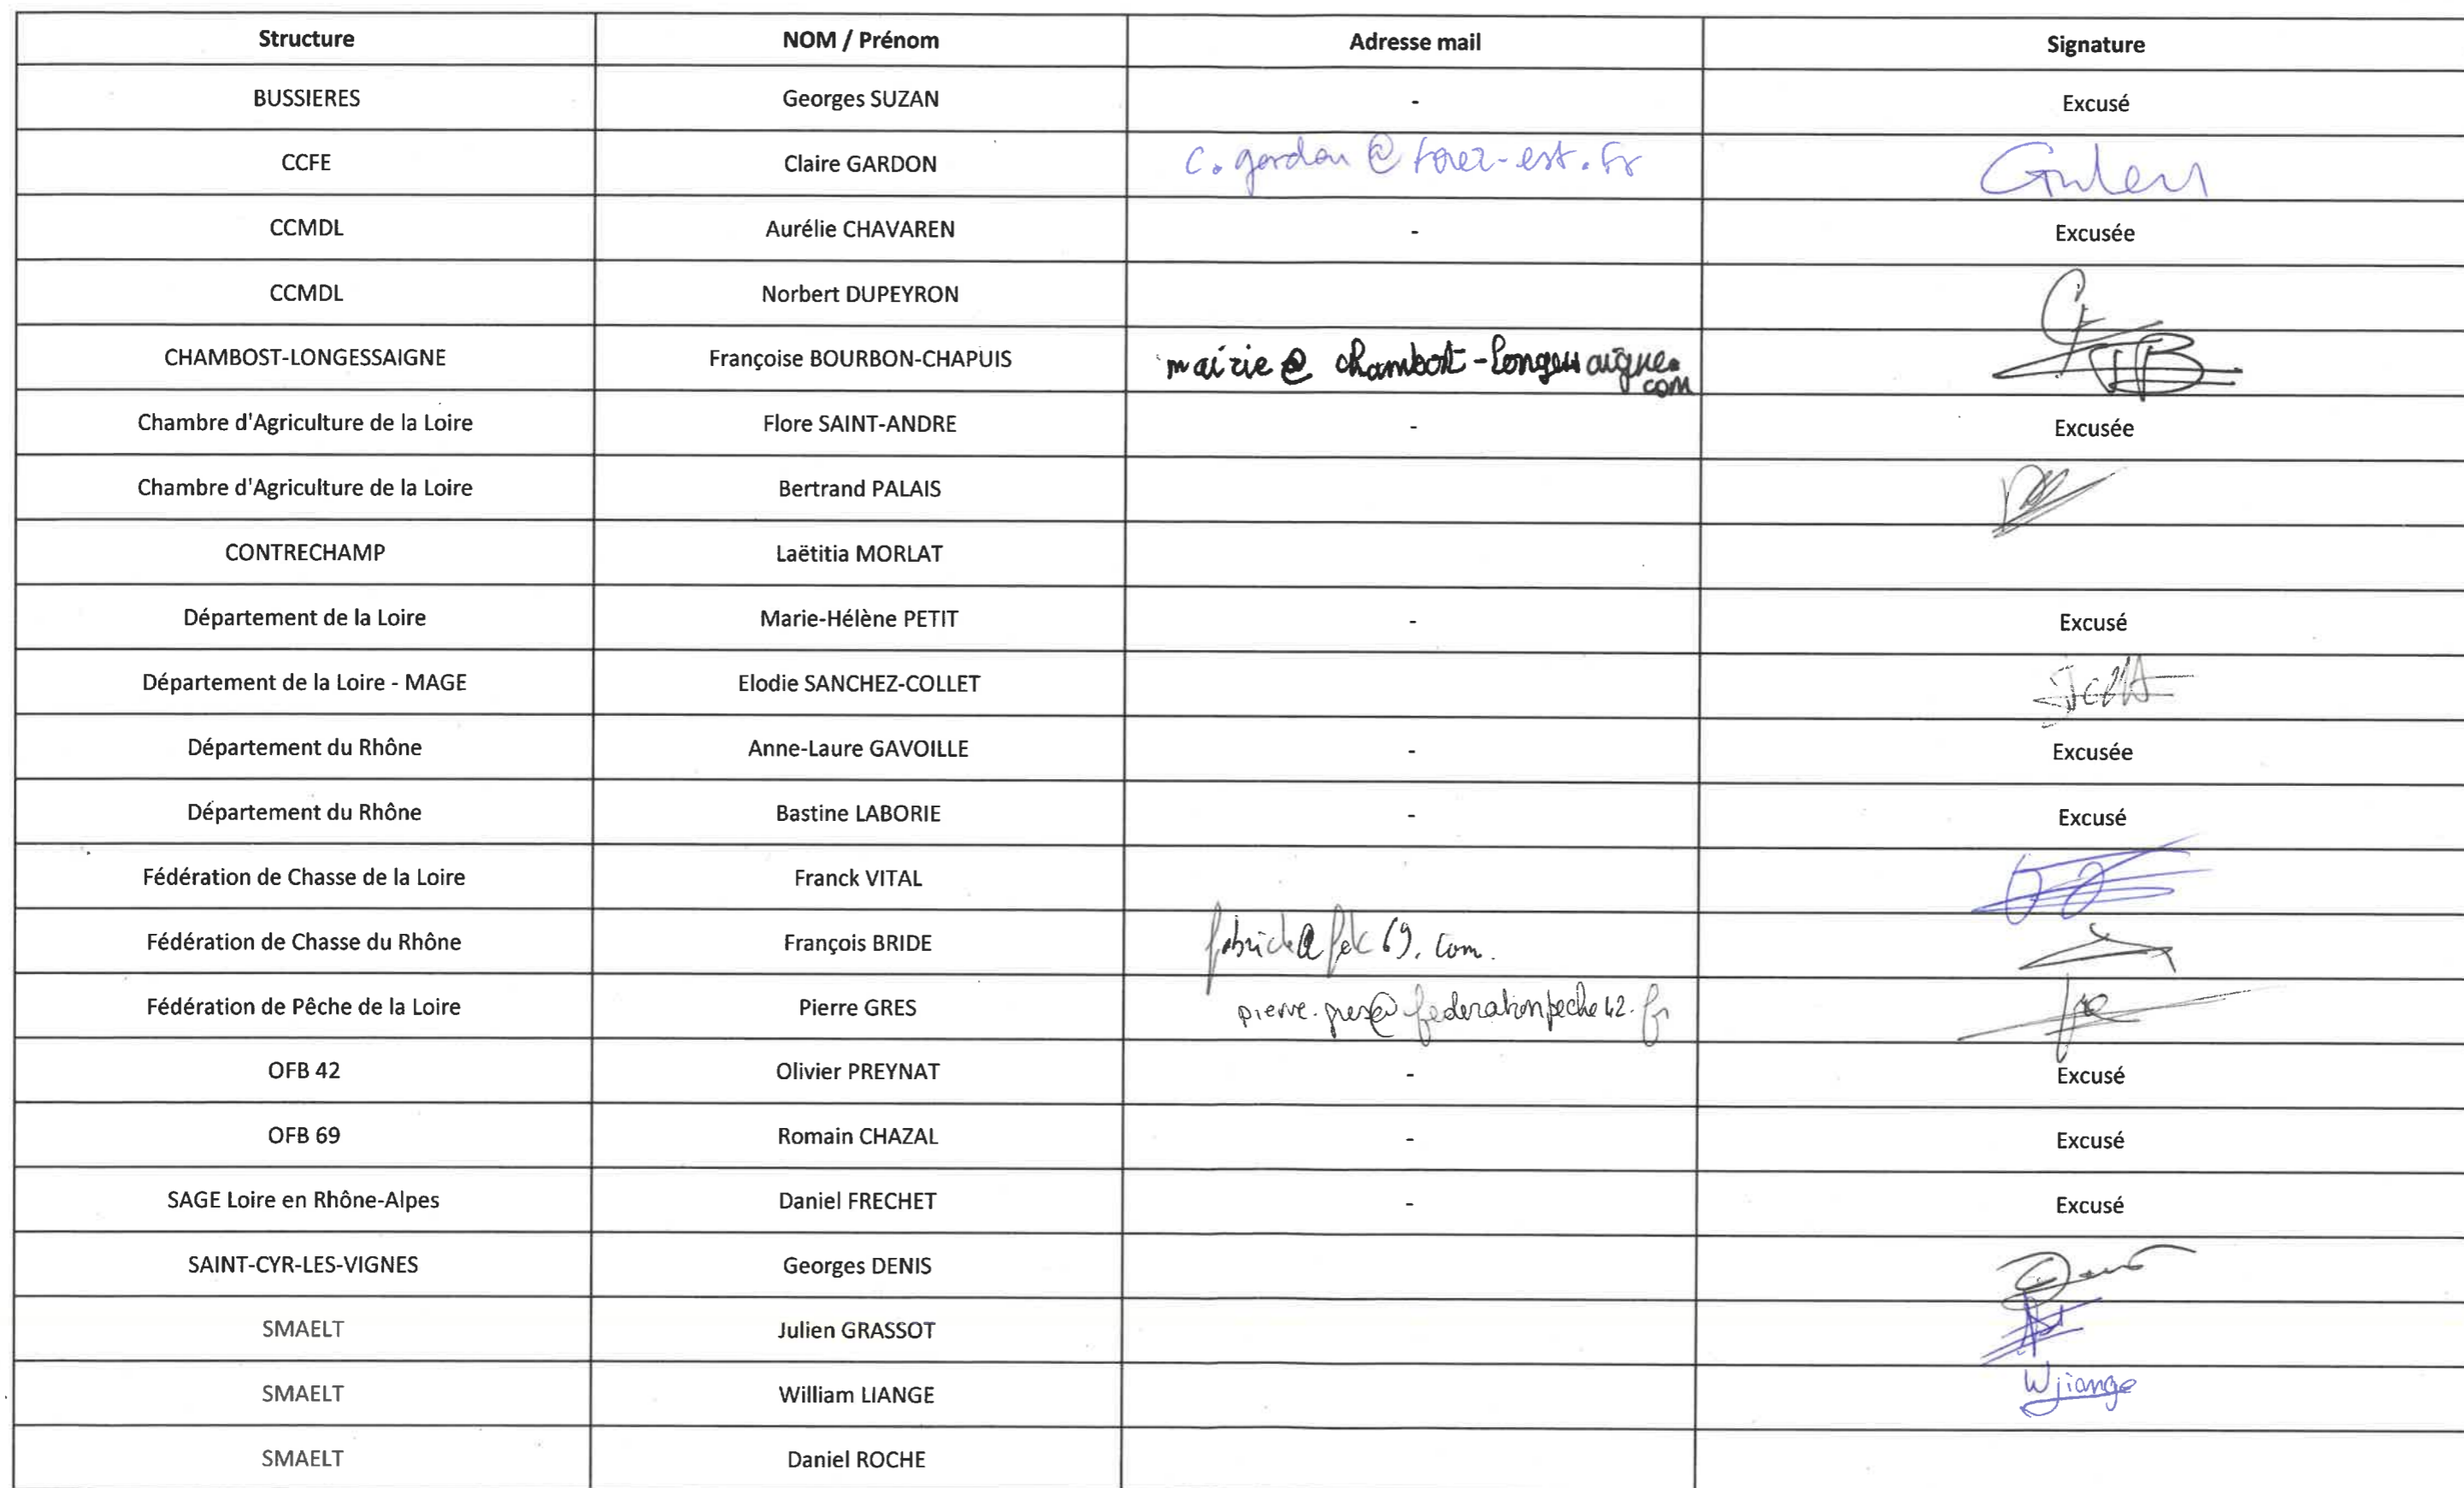 Structure NOM / Prénom Adresse mail Signature
BUSSIERES Georges SUZAN - Excusé
CCFE Claire GARDON c.gardon@forez-est.fr
CCMDL Aurélie CHAVAREN - Excusée
CCMDL Norbert DUPEYRON
CHAMBOST-LONGESSAIGNE Françoise BOURBON-CHAPUIS mairie@chambost-longessaigne.
com
Chambre d'Agriculture de la Loire Flore SAINT-ANDRE - Excusée
Chambre d'Agriculture de la Loire Bertrand PALAIS
CONTRECHAMP Laëtitia MORLAT
Département de la Loire Marie-Hélène PETIT - Excusé
Département de la Loire - MAGE Elodie SANCHEZ-COLLET
Département du Rhône Anne-Laure GAVOILLE - Excusée
Département du Rhône Bastine LABORIE - Excusé
Fédération de Chasse de la Loire Franck VITAL
Fédération de Chasse du Rhône François BRIDE
Fédération de Pêche de la Loire Pierre GRES pierre.gres@federationpeche42.fr
OFB 42 Olivier PREYNAT - Excusé
OFB 69 Romain CHAZAL - Excusé
SAGE Loire en Rhône-Alpes Daniel FRECHET - Excusé
SAINT-CYR-LES-VIGNES Georges DENIS
SMAELT Julien GRASSOT
SMAELT William LIANGE Wjiange
SMAELT Daniel ROCHE